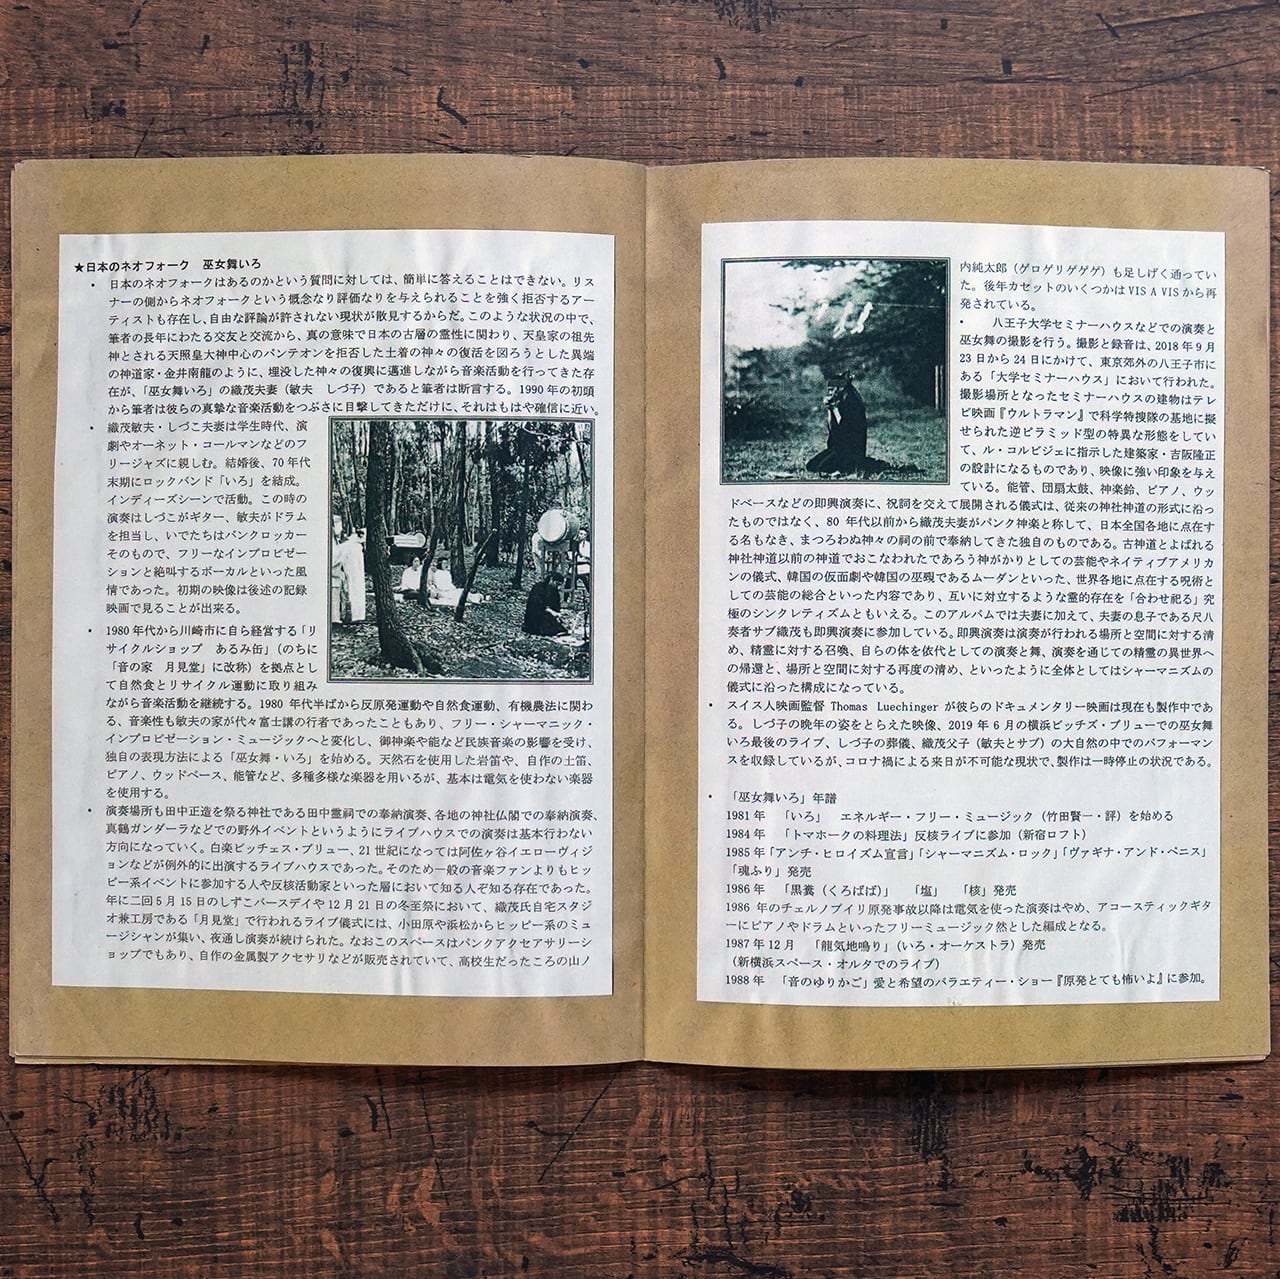 ★日本のネオフォーク　巫女舞いろ
• 日本のネオフォークはあるのかという質問に対しては、簡単に答えることはできない。リス
ナーの側からネオフォークという概念なり評価なりを与えられることを強く拒否するアー
ティストも存在し、自由な評論が許されない現状が散見するからだ。このような状況の中で、
筆者の長年にわたる交友と交流から、真の意味で日本の古層の霊性に関わり、天皇家の祖先
神とされる天照皇大神中心のパンテオンを拒否した土着の神々の復活を図ろうとした異端
の神道家・金井南龍のように、埋没した神々の復興に邁進しながら音楽活動を行ってきた存
在が、「巫女舞いろ」の織茂夫妻（敏夫　しづ子）であると筆者は断言する。1990 年の初頭
から筆者は彼らの真摯な音楽活動をつぶさに目撃してきただけに、それはもはや確信に近い。
• 織茂敏夫・しづこ夫妻は学生時代、演
劇やオーネット・コールマンなどのフ
リージャズに親しむ。結婚後、70 年代
末期にロックバンド「いろ」を結成。
インディーズシーンで活動。この時の
演奏はしづこがギター、敏夫がドラム
を担当し、いでたちはパンクロッカー
そのもので、フリーなインプロビゼー
ションと絶叫するボーカルといった風
情であった。初期の映像は後述の記録
映画で見ることが出来る。
• 1980 年代から川崎市に自ら経営する「リ
サイクルショップ　あるみ缶」（のちに
「音の家　月見堂」に改称）を拠点とし
て自然食とリサイクル運動に取り組み
ながら音楽活動を継続する。1980 年代半ばから反原発運動や自然食運動、有機農法に関わ
る、音楽性も敏夫の家が代々富士講の行者であったこともあり、フリー・シャーマニック・
インプロビゼーション・ミュージックへと変化し、御神楽や能など民族音楽の影響を受け、
独自の表現方法による「巫女舞・いろ」を始める。天然石を使用した岩笛や、自作の土笛、
ピアノ、ウッドベース、能管など、多種多様な楽器を用いるが、基本は電気を使わない楽器
を使用する。
• 演奏場所も田中正造を祭る神社である田中霊祠での奉納演奏、各地の神社仏閣での奉納演奏、
真鶴ガンダーラなどでの野外イベントというようにライブハウスでの演奏は基本行わない
方向になっていく。白楽ビッチェス・ブリュー、21 世紀になっては阿佐ヶ谷イエローヴィジ
ョンなどが例外的に出演するライブハウスであった。そのため一般の音楽ファンよりもヒッ
ピー系イベントに参加する人や反核活動家といった層において知る人ぞ知る存在であった。
年に二回 5 月 15 日のしずこバースデイや 12 月 21 日の冬至祭において、織茂氏自宅スタジ
オ兼工房である「月見堂」で行われるライブ儀式には、小田原や浜松からヒッピー系のミュ
ージシャンが集い、夜通し演奏が続けられた。なおこのスペースはパンクアクセアサリーシ
ョップでもあり、自作の金属製アクセサリなどが販売されていて、高校生だったころの山ノ
内純太郎（ゲロゲリゲゲゲ）も足しげく通ってい
た。後年カセットのいくつかは VIS A VIS から再
発されている。
• 八王子大学セミナーハウスなどでの演奏と
巫女舞の撮影を行う。撮影と録音は、2018 年 9 月
23 日から 24 日にかけて、東京郊外の八王子市に
ある「大学セミナーハウス」において行われた。
撮影場所となったセミナーハウスの建物はテレ
ビ映画『ウルトラマン』で科学特捜隊の基地に擬
せられた逆ピラミッド型の特異な形態をしてい
て、ル・コルビジェに指示した建築家・吉阪隆正
の設計になるものであり、映像に強い印象を与え
ている。能管、団扇太鼓、神楽鈴、ピアノ、ウッ
ドベースなどの即興演奏に、祝詞を交えて展開される儀式は、従来の神社神道の形式に沿っ
たものではなく、80 年代以前から織茂夫妻がパンク神楽と称して、日本全国各地に点在す
る名もなき、まつろわぬ神々の祠の前で奉納してきた独自のものである。古神道とよばれる
神社神道以前の神道でおこなわれたであろう神がかりとしての芸能やネイティブアメリカ
ンの儀式、韓国の仮面劇や韓国の巫覡であるムーダンといった、世界各地に点在する呪術と
しての芸能の総合といった内容であり、互いに対立するような霊的存在を「合わせ祀る」究
極のシンクレティズムともいえる。このアルバムでは夫妻に加えて、夫妻の息子である尺八
奏者サブ織茂も即興演奏に参加している。即興演奏は演奏が行われる場所と空間に対する清
め、精霊に対する召喚、自らの体を依代としての演奏と舞、演奏を通じての精霊の異世界へ
の帰還と、場所と空間に対する再度の清め、といったように全体としてはシャーマニズムの
儀式に沿った構成になっている。
• スイス人映画監督 Thomas Luechinger が彼らのドキュメンタリー映画は現在も製作中であ
る。しづ子の晩年の姿をとらえた映像、2019 年 6 月の横浜ビッチズ・ブリューでの巫女舞
いろ最後のライブ、しづ子の葬儀、織茂父子（敏夫とサブ）の大自然の中でのパフォーマン
スを収録しているが、コロナ禍による来日が不可能な現状で、製作は一時停止の状況である。
• 「巫女舞いろ」年譜
1981 年　「いろ」　エネルギー・フリー・ミュージック（竹田賢一・評）を始める
1984 年　「トマホークの料理法」反核ライブに参加（新宿ロフト）
1985 年「アンチ・ヒロイズム宣言」「シャーマニズム・ロック」「ヴァギナ・アンド・ペニス」
「魂ふり」発売
1986 年　「黒糞（くろばば）」　「塩」　「核」発売
1986 年のチェルノブイリ原発事故以降は電気を使った演奏はやめ、アコースティックギタ
ーにピアノやドラムといったフリーミュージック然とした編成となる。
1987 年 12 月　「龍気地鳴り」（いろ・オーケストラ）発売
（新横浜スペース・オルタでのライブ）
1988 年　「音のゆりかご」愛と希望のバラエティー・ショー『原発とても怖いよ』に参加。